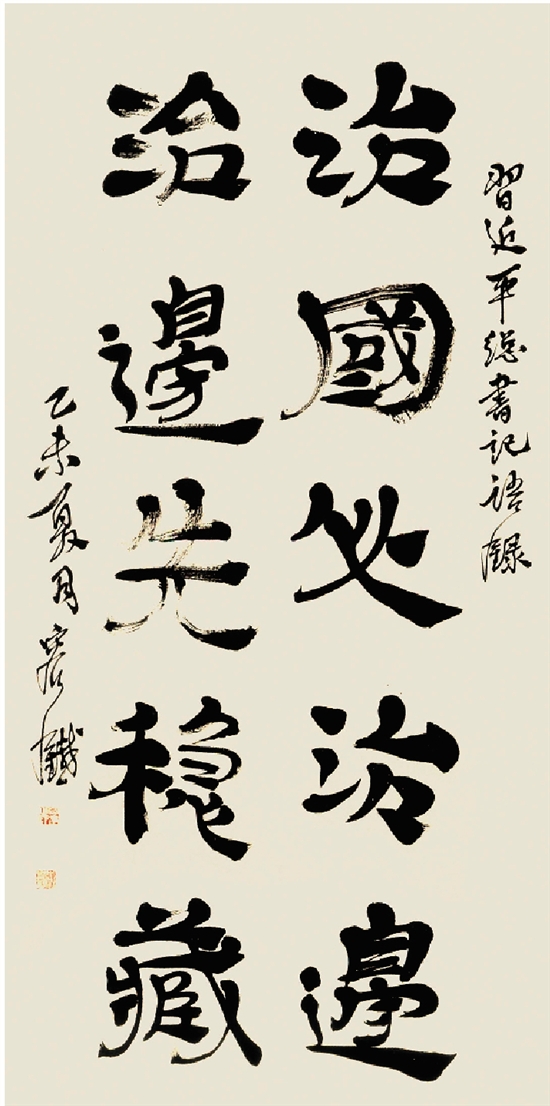 習近平總書記語錄
治國必治邊
治邊先穩藏
乙未夏月容鐵